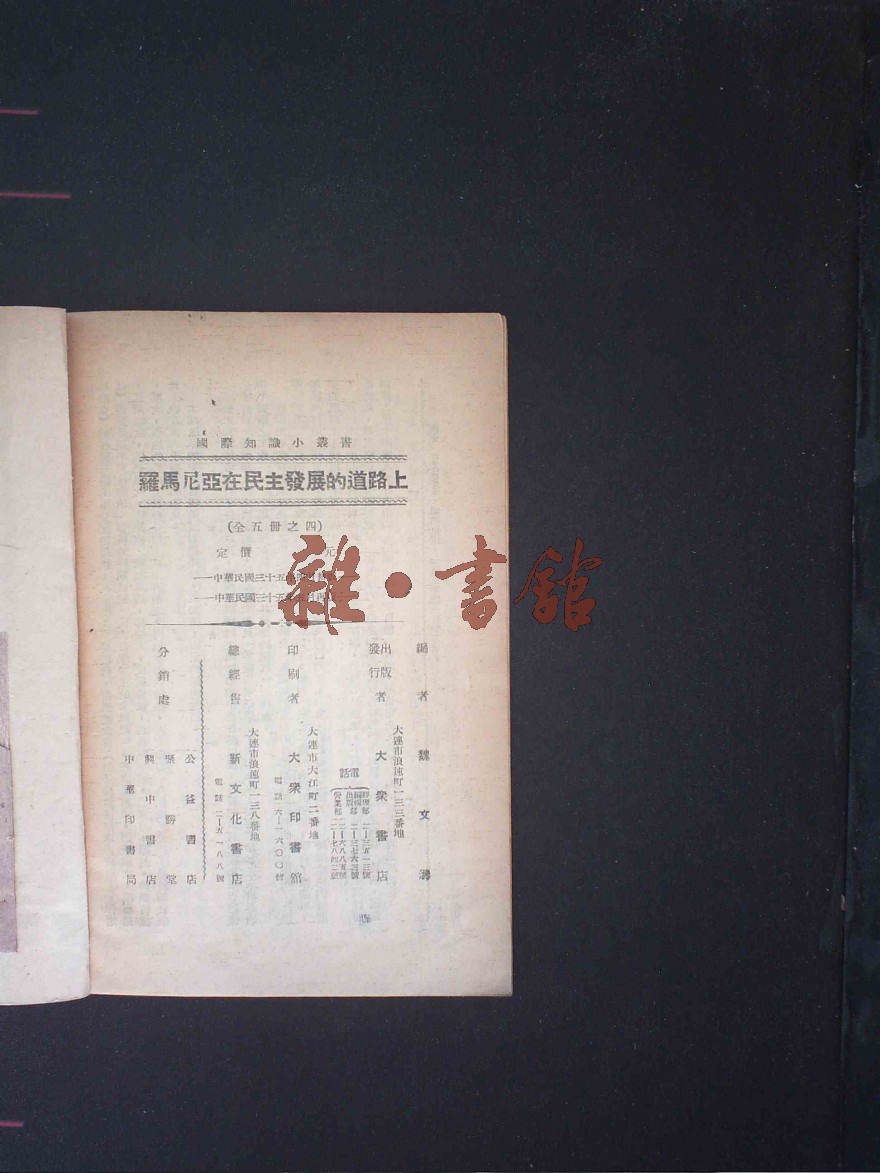 國際知識小叢書
羅馬尼亞在民主發展的道路上
(全五冊之四)
定價 元
中華民國三十五年
中華民國三十五年 月再
雜·書館
編者 魏文
出版發行者
大連市浪速町一三三番地
大衆書店
電話
經理部 二—三五一三號
編輯部 二—三七六三號
出版部 二—六八八五號
營業部 二—七八四二號
印刷者
大連市大江町二番地
大衆印書館
電話 六—一六〇〇號
總經售
大連市浪速町一三八番地
新文化書店
電話 二—五一八八號
分銷處
公益書店
聚勝堂
興中書店
中華印書局